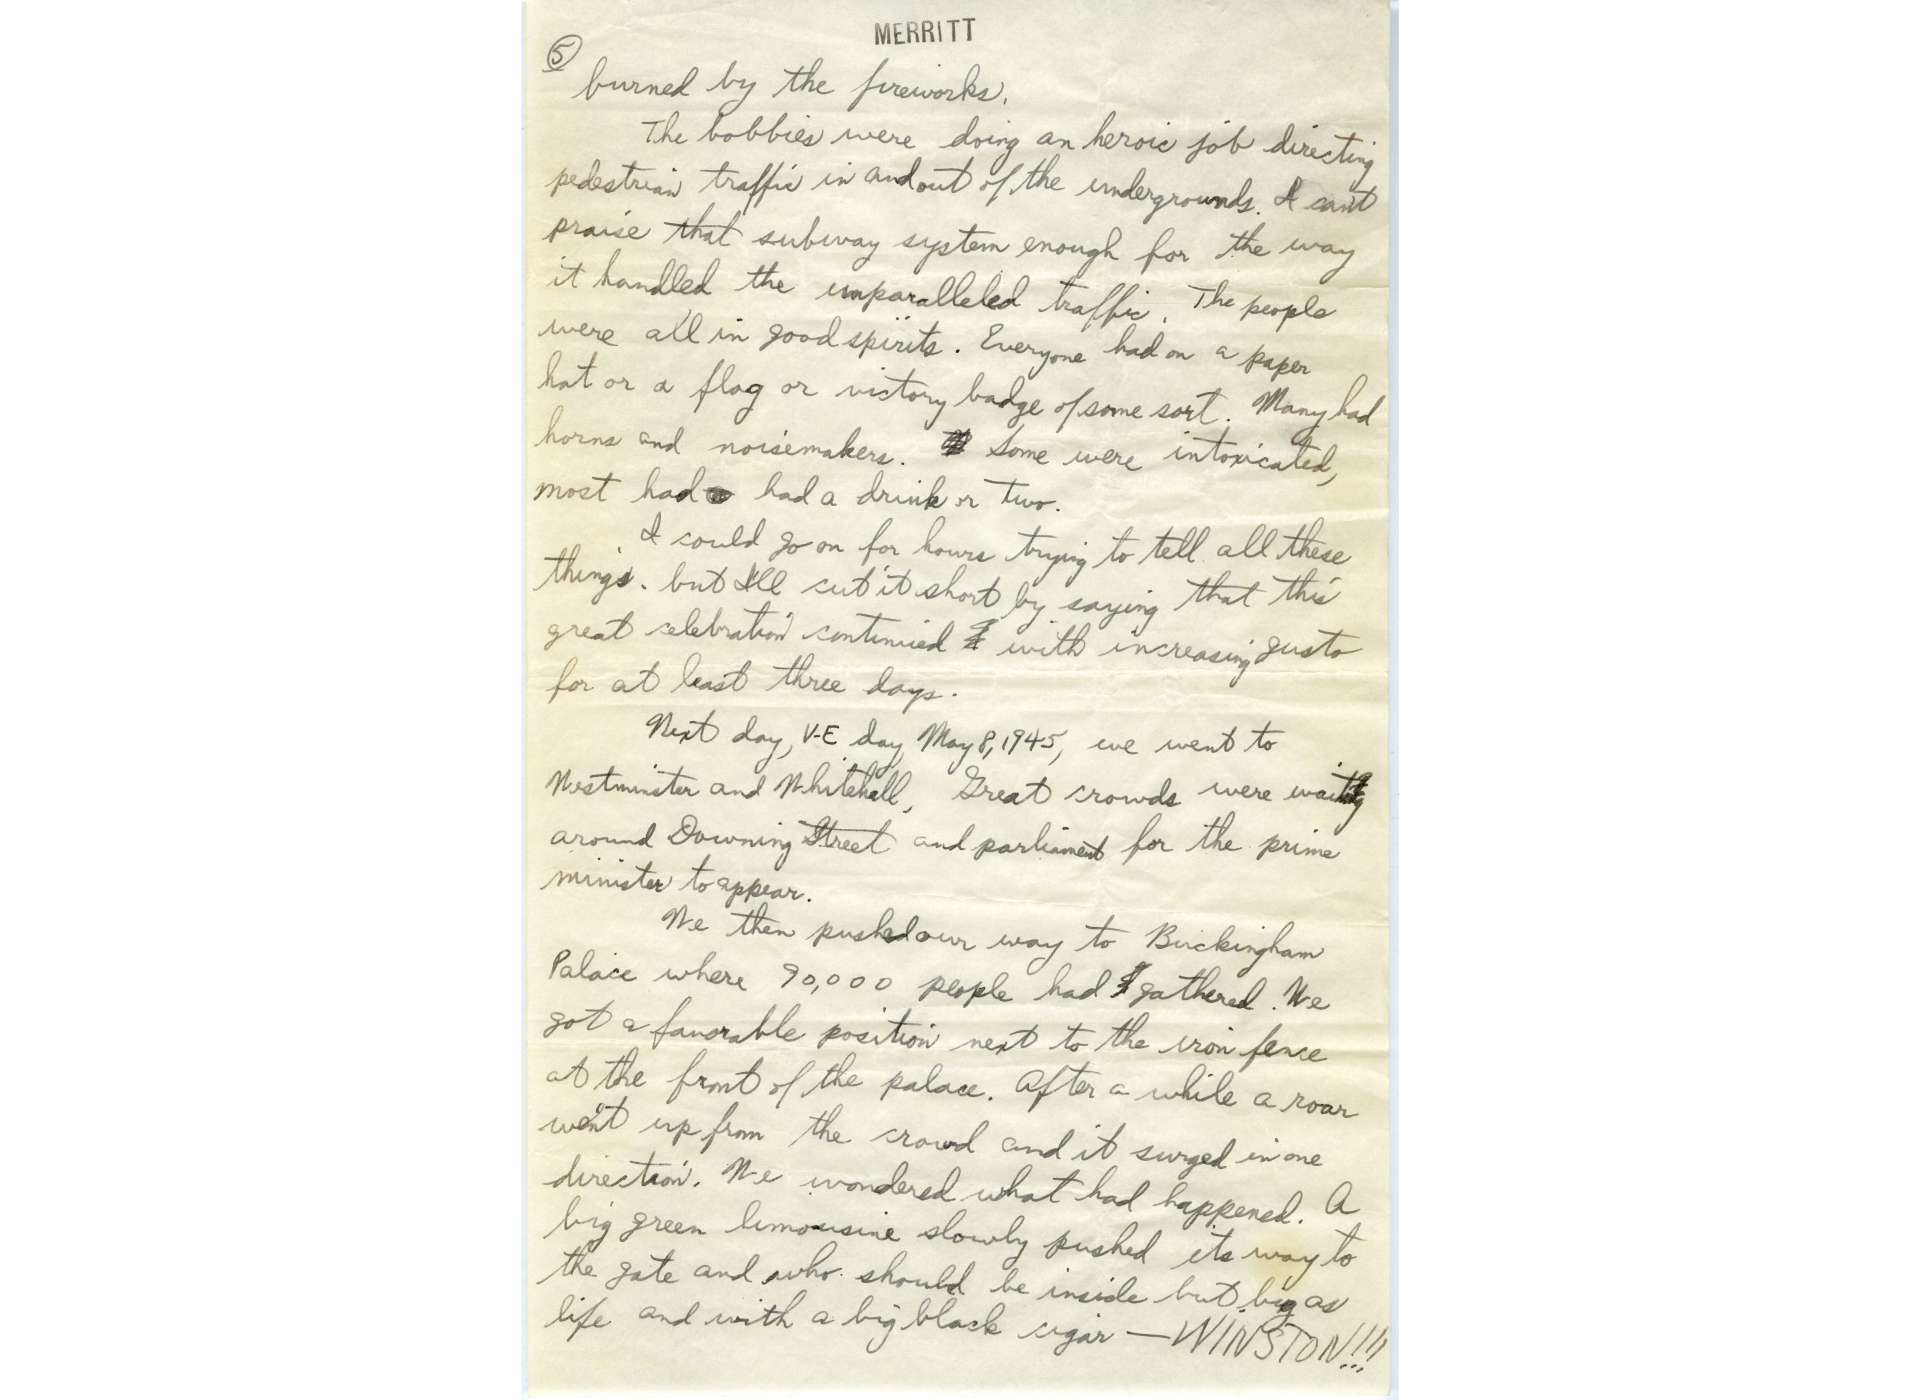 MERRITT
5
burned by the fireworks.
The bobbies were doing an heroic job directing
pedestrian traffic in and out of the undergrounds. I can't
praise that subway system enough for the way
it handled the unparalleled traffic. The people
were all in good spirits. Everyone had on a paper
hat or a flag or victory badge of some sort. Many had
horns and noisemakers. Some were intoxicated,
most had had a drink or two.
I could go on for hours trying to tell all these
things. but I'll cut it short by saying that this
great celebration continued with increasing gusto
for at least three days.
Next day, V-E day, May 8, 1945, we went to
Westminster and Whitehall, Great crowds were waiting
around Downing Street and parliament for the prime
minister to appear.
We then pushed our way to Buckingham
Palace where 90,000 people had gathered. We
got a favorable position next to the iron fence
at the front of the palace. After a while a roar
went up from the crowd and it surged in one
direction. We wondered what had happened. A
big green limousine slowly pushed its way to
the gate and who should be inside but big as
life and with a big black cigar — WINSTON!!!